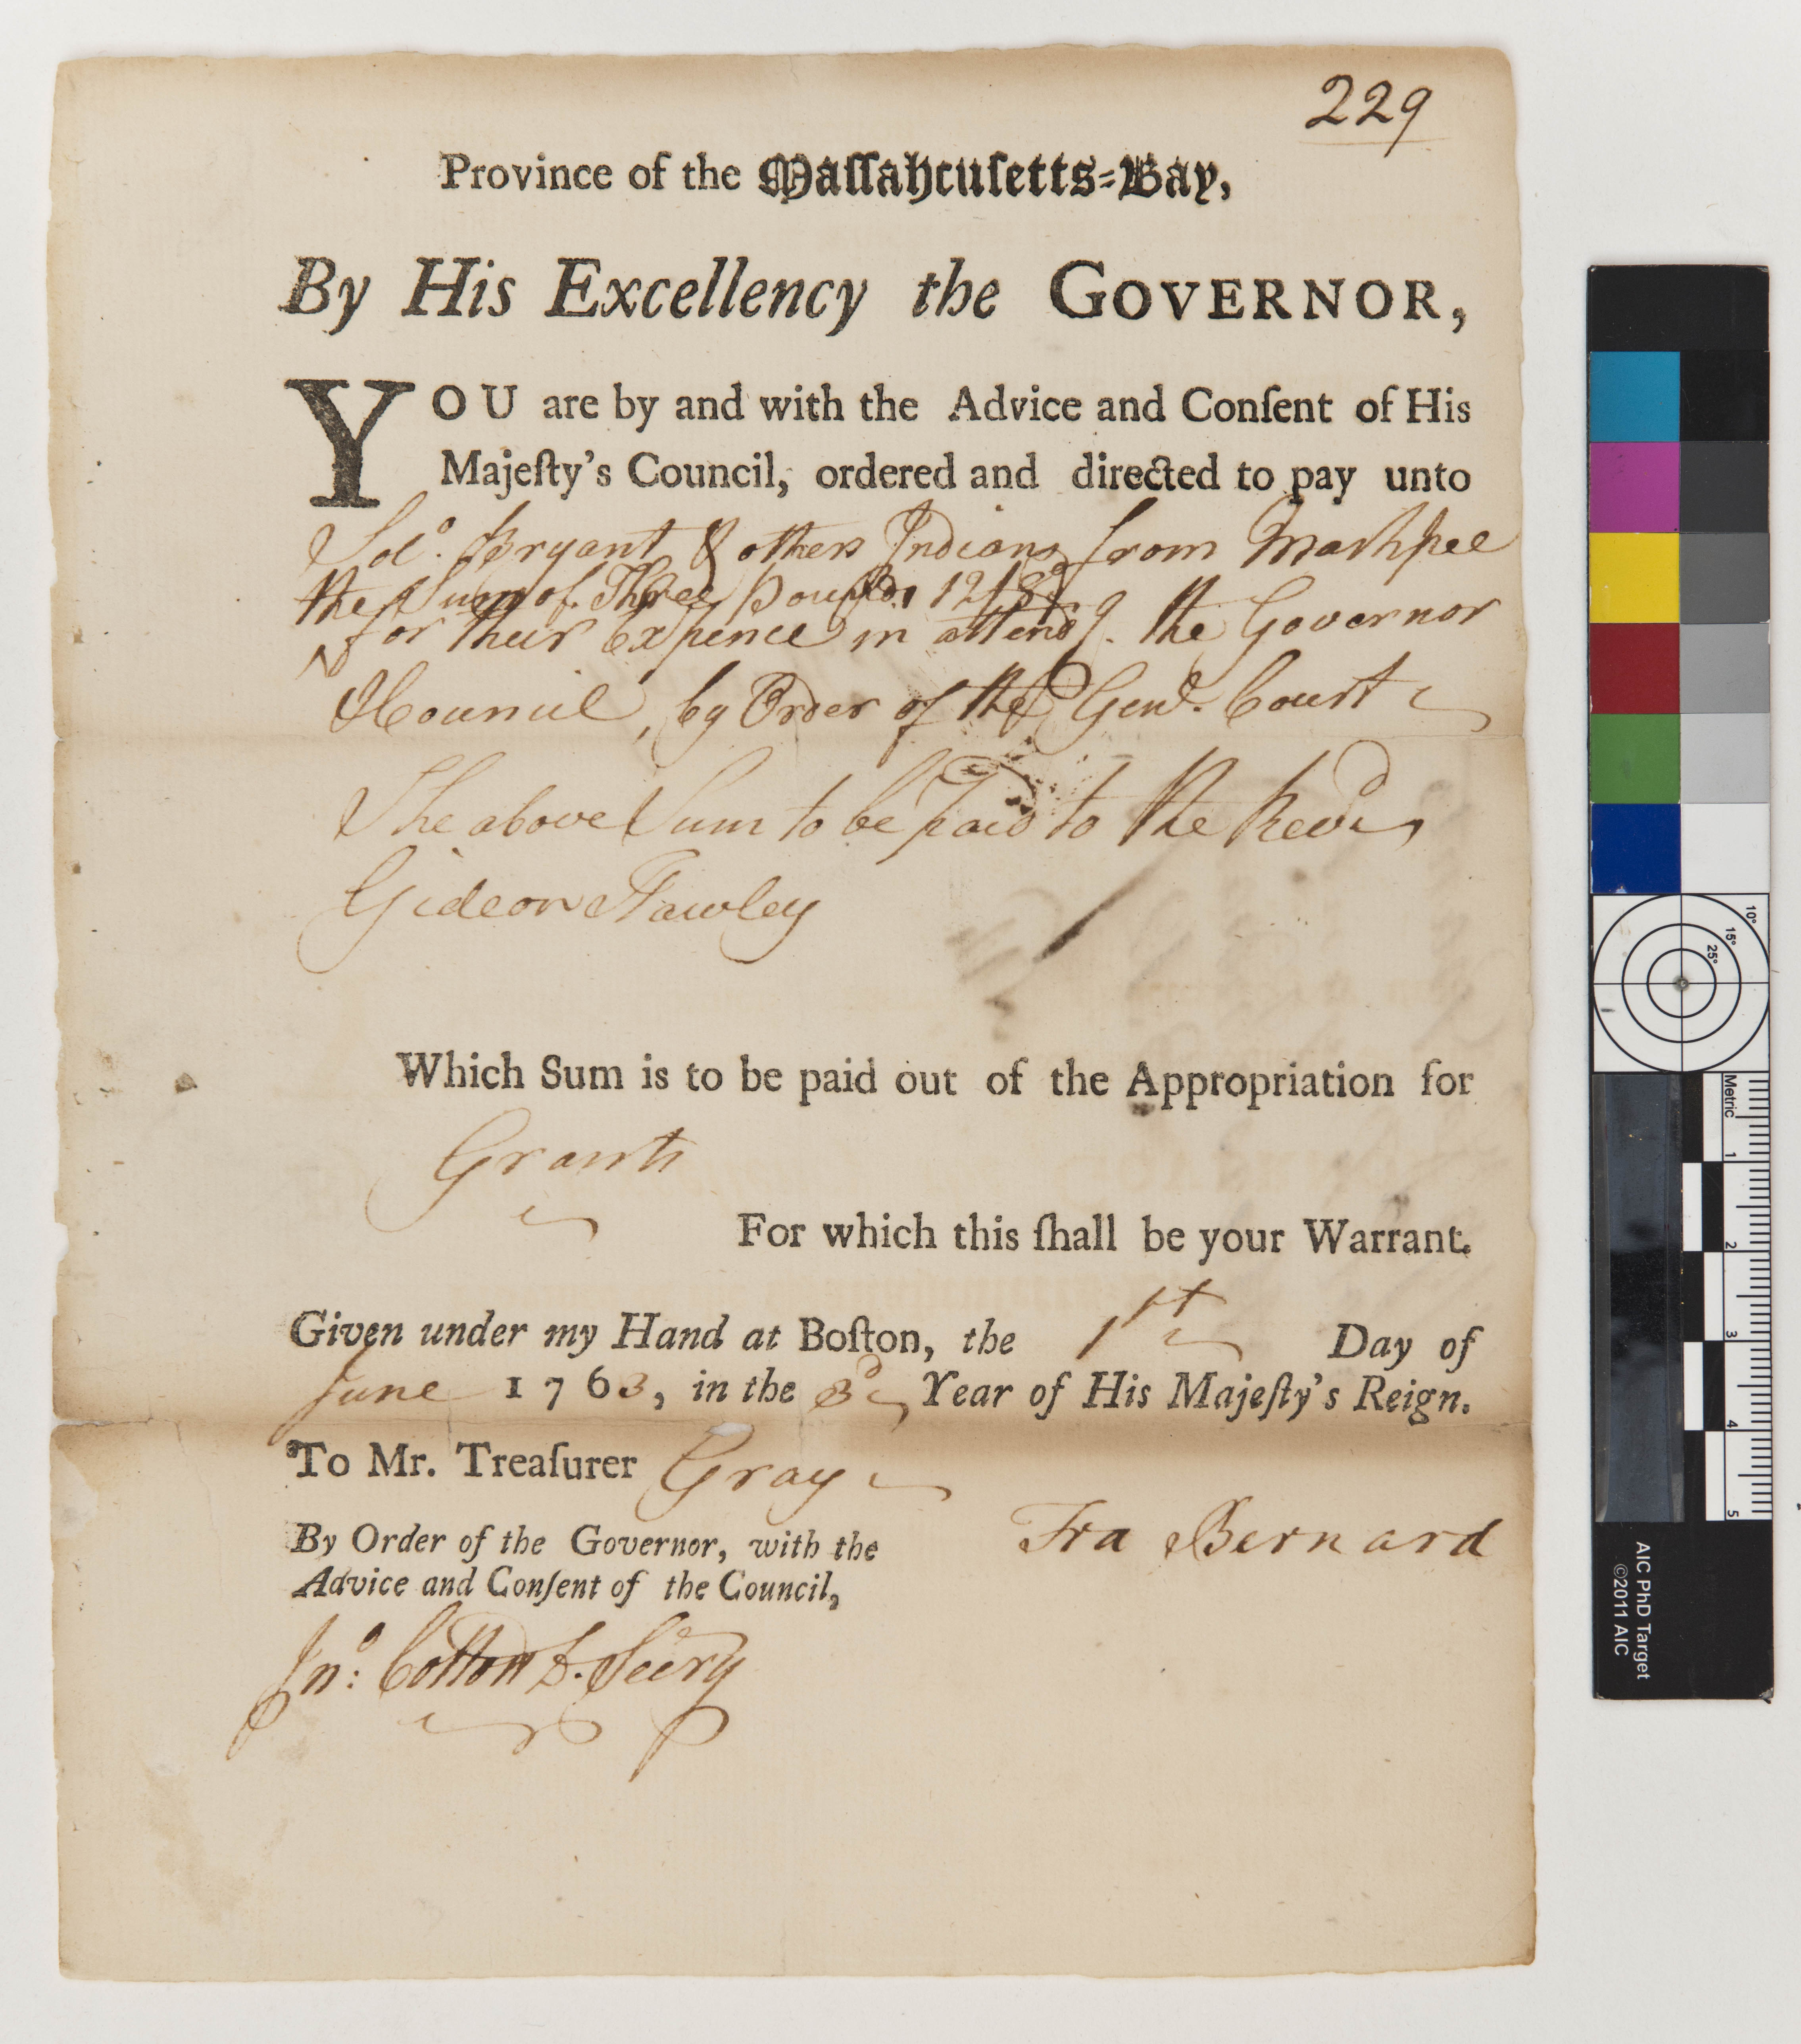 229
Province of the Massahcusetts-Bay,
By His Excellency the GOVERNOR,
YOU are by and with the Advice and Conſent of His
Majeſty's Council, ordered and directed to pay unto
Solo. Bryant & others Indians from Mashpee
the Sum of Three pounds 12/8
for their Expence in attendg. the Governor
& Council, by Order of the Genl. Court
The above Sum to be paid to the Revd
Gideon Hawley
Which Sum is to be paid out of the Appropriation for
Grants
For which this ſhall be your Warrant.
Given under my Hand at Boſton, the 1st Day of
June 1763, in the 3d Year of His Majeſty's Reign.
To Mr. Treaſurer Gray
By Order of the Governor, with the
Advice and Conſent of the Council,
Fra Bernard
Jno: Cotton D. Secry
10°
15°
25°
Metric
1
2
3
4
5
AIC PhD Target
©2011 AIC